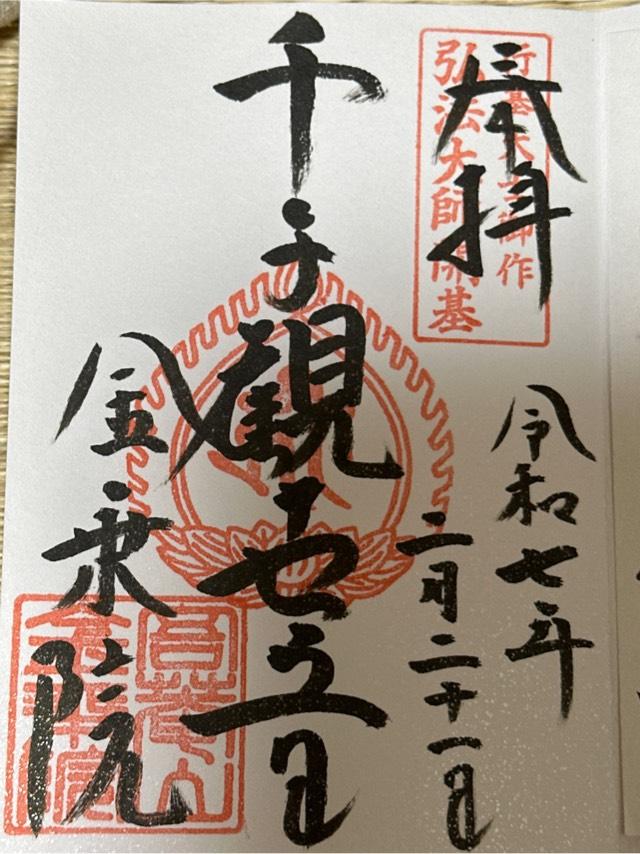 行基大士御作
弘法大師開基
奉拝
令和七年
二月二十一日
千手観世音
金乗院